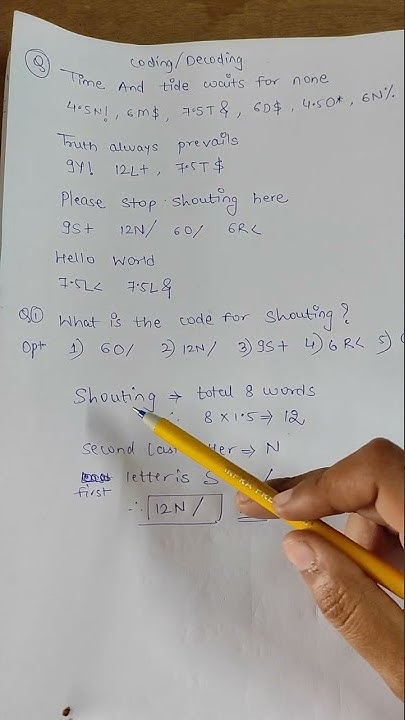 Q Coding/Decoding
Time And tide waits for none
4.5N!, 6m$, 7.5T&, 6D$, 4.5O*, 6N%
Truth always prevails
9Y! 12L+, 7.5T$
Please stop shouting here
9S+ 12N/ 6O/ 6R<
Hello World
7.5L< 7.5L&
Q① What is the code for Shouting?
Opt 1) 6O/ 2) 12N/ 3) 9S+ 4) 6R< 5)
Shouting → total 8 words
∴ 8 x 1.5 ⇒ 12
Second ⇒ N
letter is S /
first
∴ 12N/